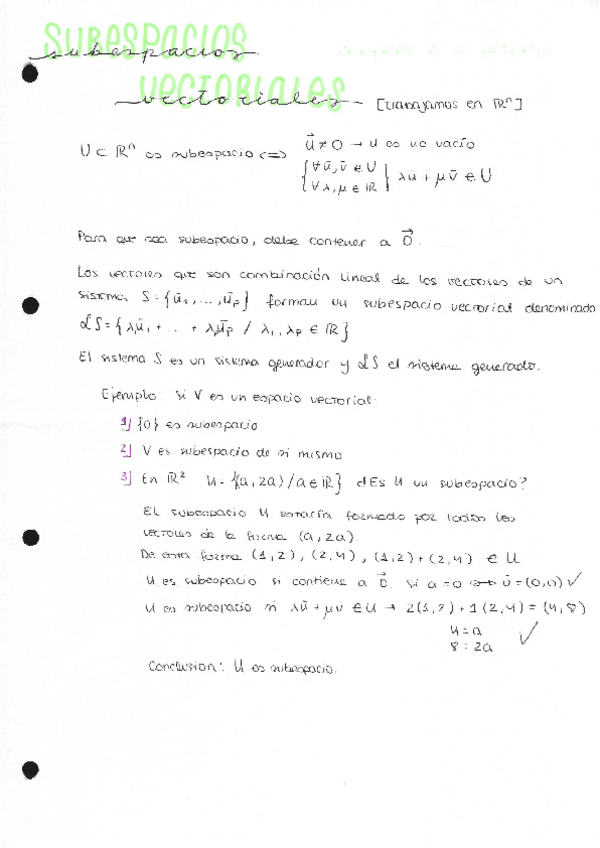 SUBESPACIOS
subespacios
VECTORIALES
vectoriales - [trabajamos en ℝⁿ]
U ⊂ ℝⁿ es subespacio ⟺ { u⃗ ≠ 0 → u es no vacío
{ ∀ū, v̄ ∈ U
∀λ, μ ∈ ℝ } λū + μv̄ ∈ U
Para que sea subespacio, debe contener a 0⃗.
Los vectores que son combinación lineal de los vectores de un
sistema S = {ū₁, ..., ūp} forman un subespacio vectorial denominado
ℒS = {λ₁ū₁ + .. + λpūp / λ₁, λp ∈ ℝ}
El sistema S es un sistema generador y ℒS el sistema generado.
Ejemplo: si V es un espacio vectorial:
1] {0} es subespacio
2] V es subespacio de si mismo
3] En ℝ² U = {(a, 2a) / a ∈ ℝ} ¿Es U un subespacio?
El subespacio U estaría formado por todos los
vectores de la forma (a, 2a)
De esta forma (1,2), (2,4), (1,2)+(2,4) ∈ U
U es subespacio si contiene a 0⃗. si a=0 → ū=(0,0) ✓
U es subespacio si λū + μv̄ ∈ U → 2(1,2) + 1(2,4) = (4,8)
4 = a
8 = 2a ✓
Conclusion: U es subespacio.